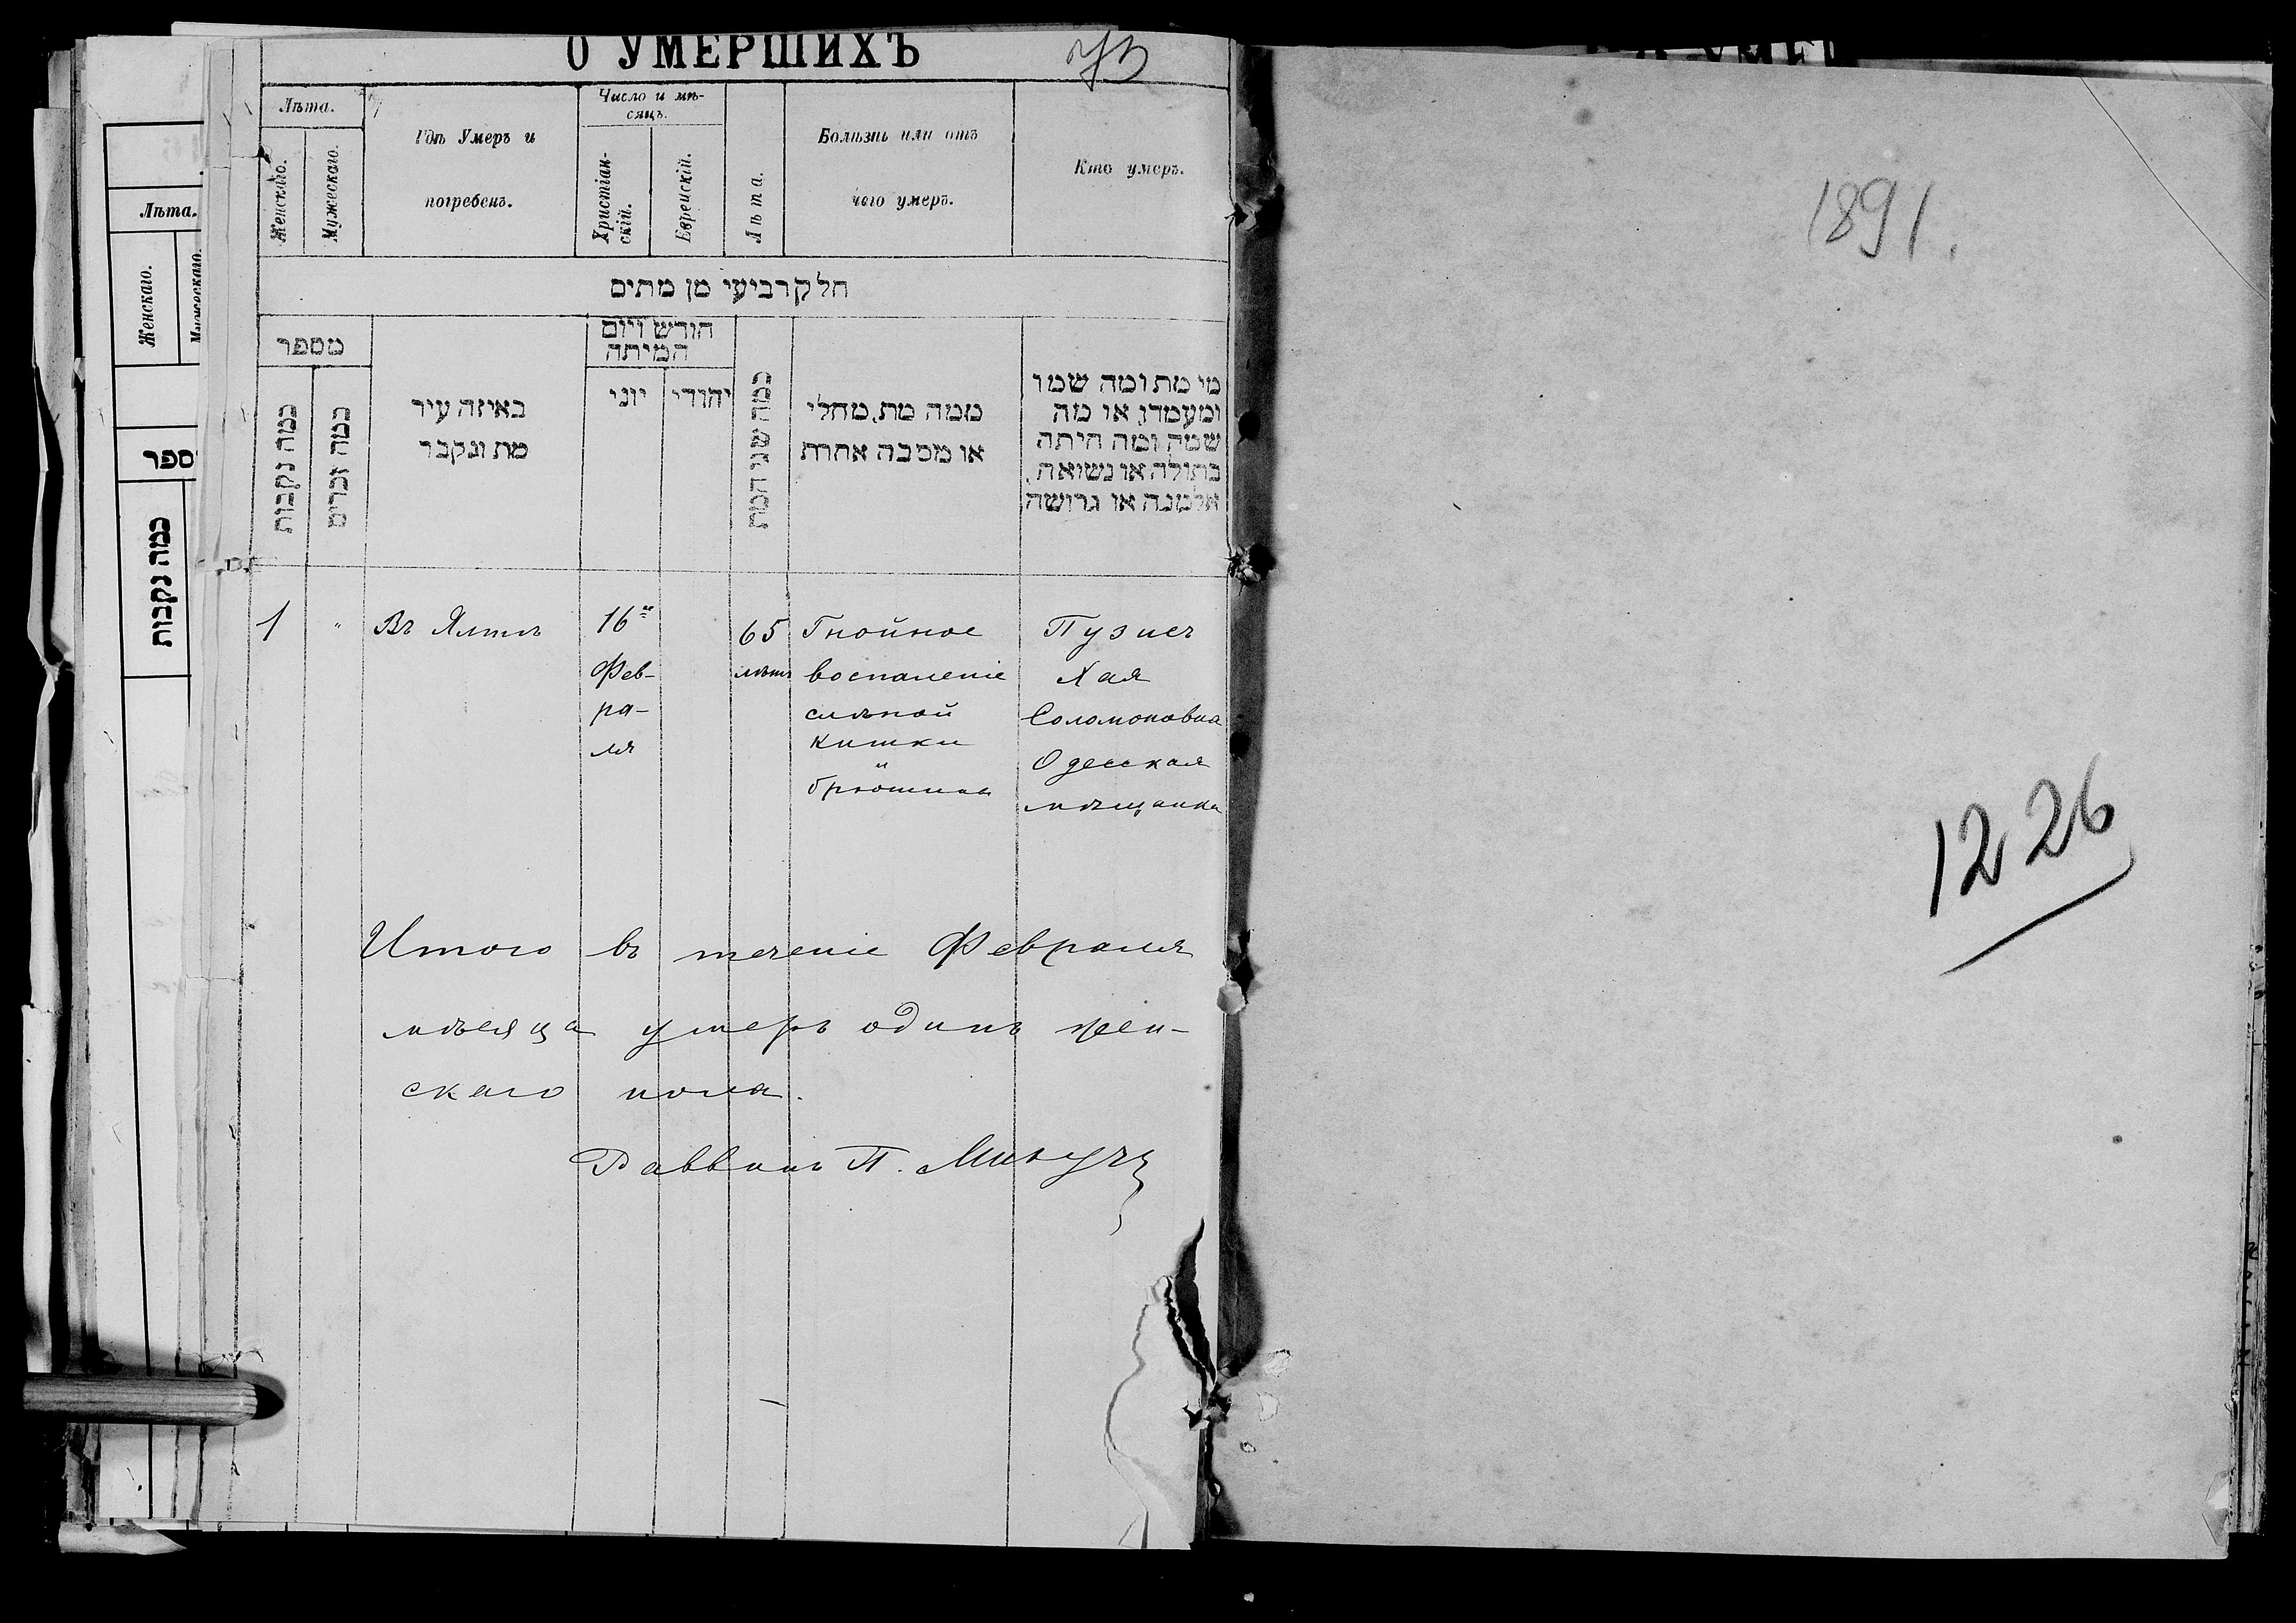 О УМЕРШИХЪ
Лѣта.
Женскаго.
Мужескаго.
Гдѣ Умеръ и
погребенъ.
Число и мѣ-
сяцъ.
Христіан-
скій.
Еврейскій.
Лѣта.
Болѣзнь или отъ
чего умеръ.
Кто умеръ.
חלק רביעי מן מתים
מספר
כמה נקבות
כמה זכרים
באיזה עיר
מת ונקבר
חודש ויום
המיתה
יוני
יהודי
כמה שני המת
ממה מת, מחלי
או מסבה אחרת
מי מת ומה שמו
ומעמדו, או מה
שמה ומה היתה
בתולה או נשואה,
אלמנה או גרושה
1
"
Въ Ялтѣ
16го
Фев-
ра-
ля
65
лѣтъ
Гнойное
воспаленіе
слѣпой
кишки
и
брюшины
Хая
Соломоновна
Одесская
мѣщанка
Итого въ теченіе Февраля
мѣсяца умеръ одинъ жен-
скаго пола.
Раввинъ П.
Лѣта.
Женскаго.
Мужескаго.
ספר
כמה נקבות
1891.
1226